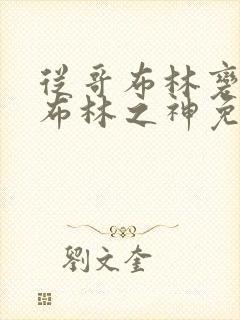 從哥布林變
布林之神免
劉文奎